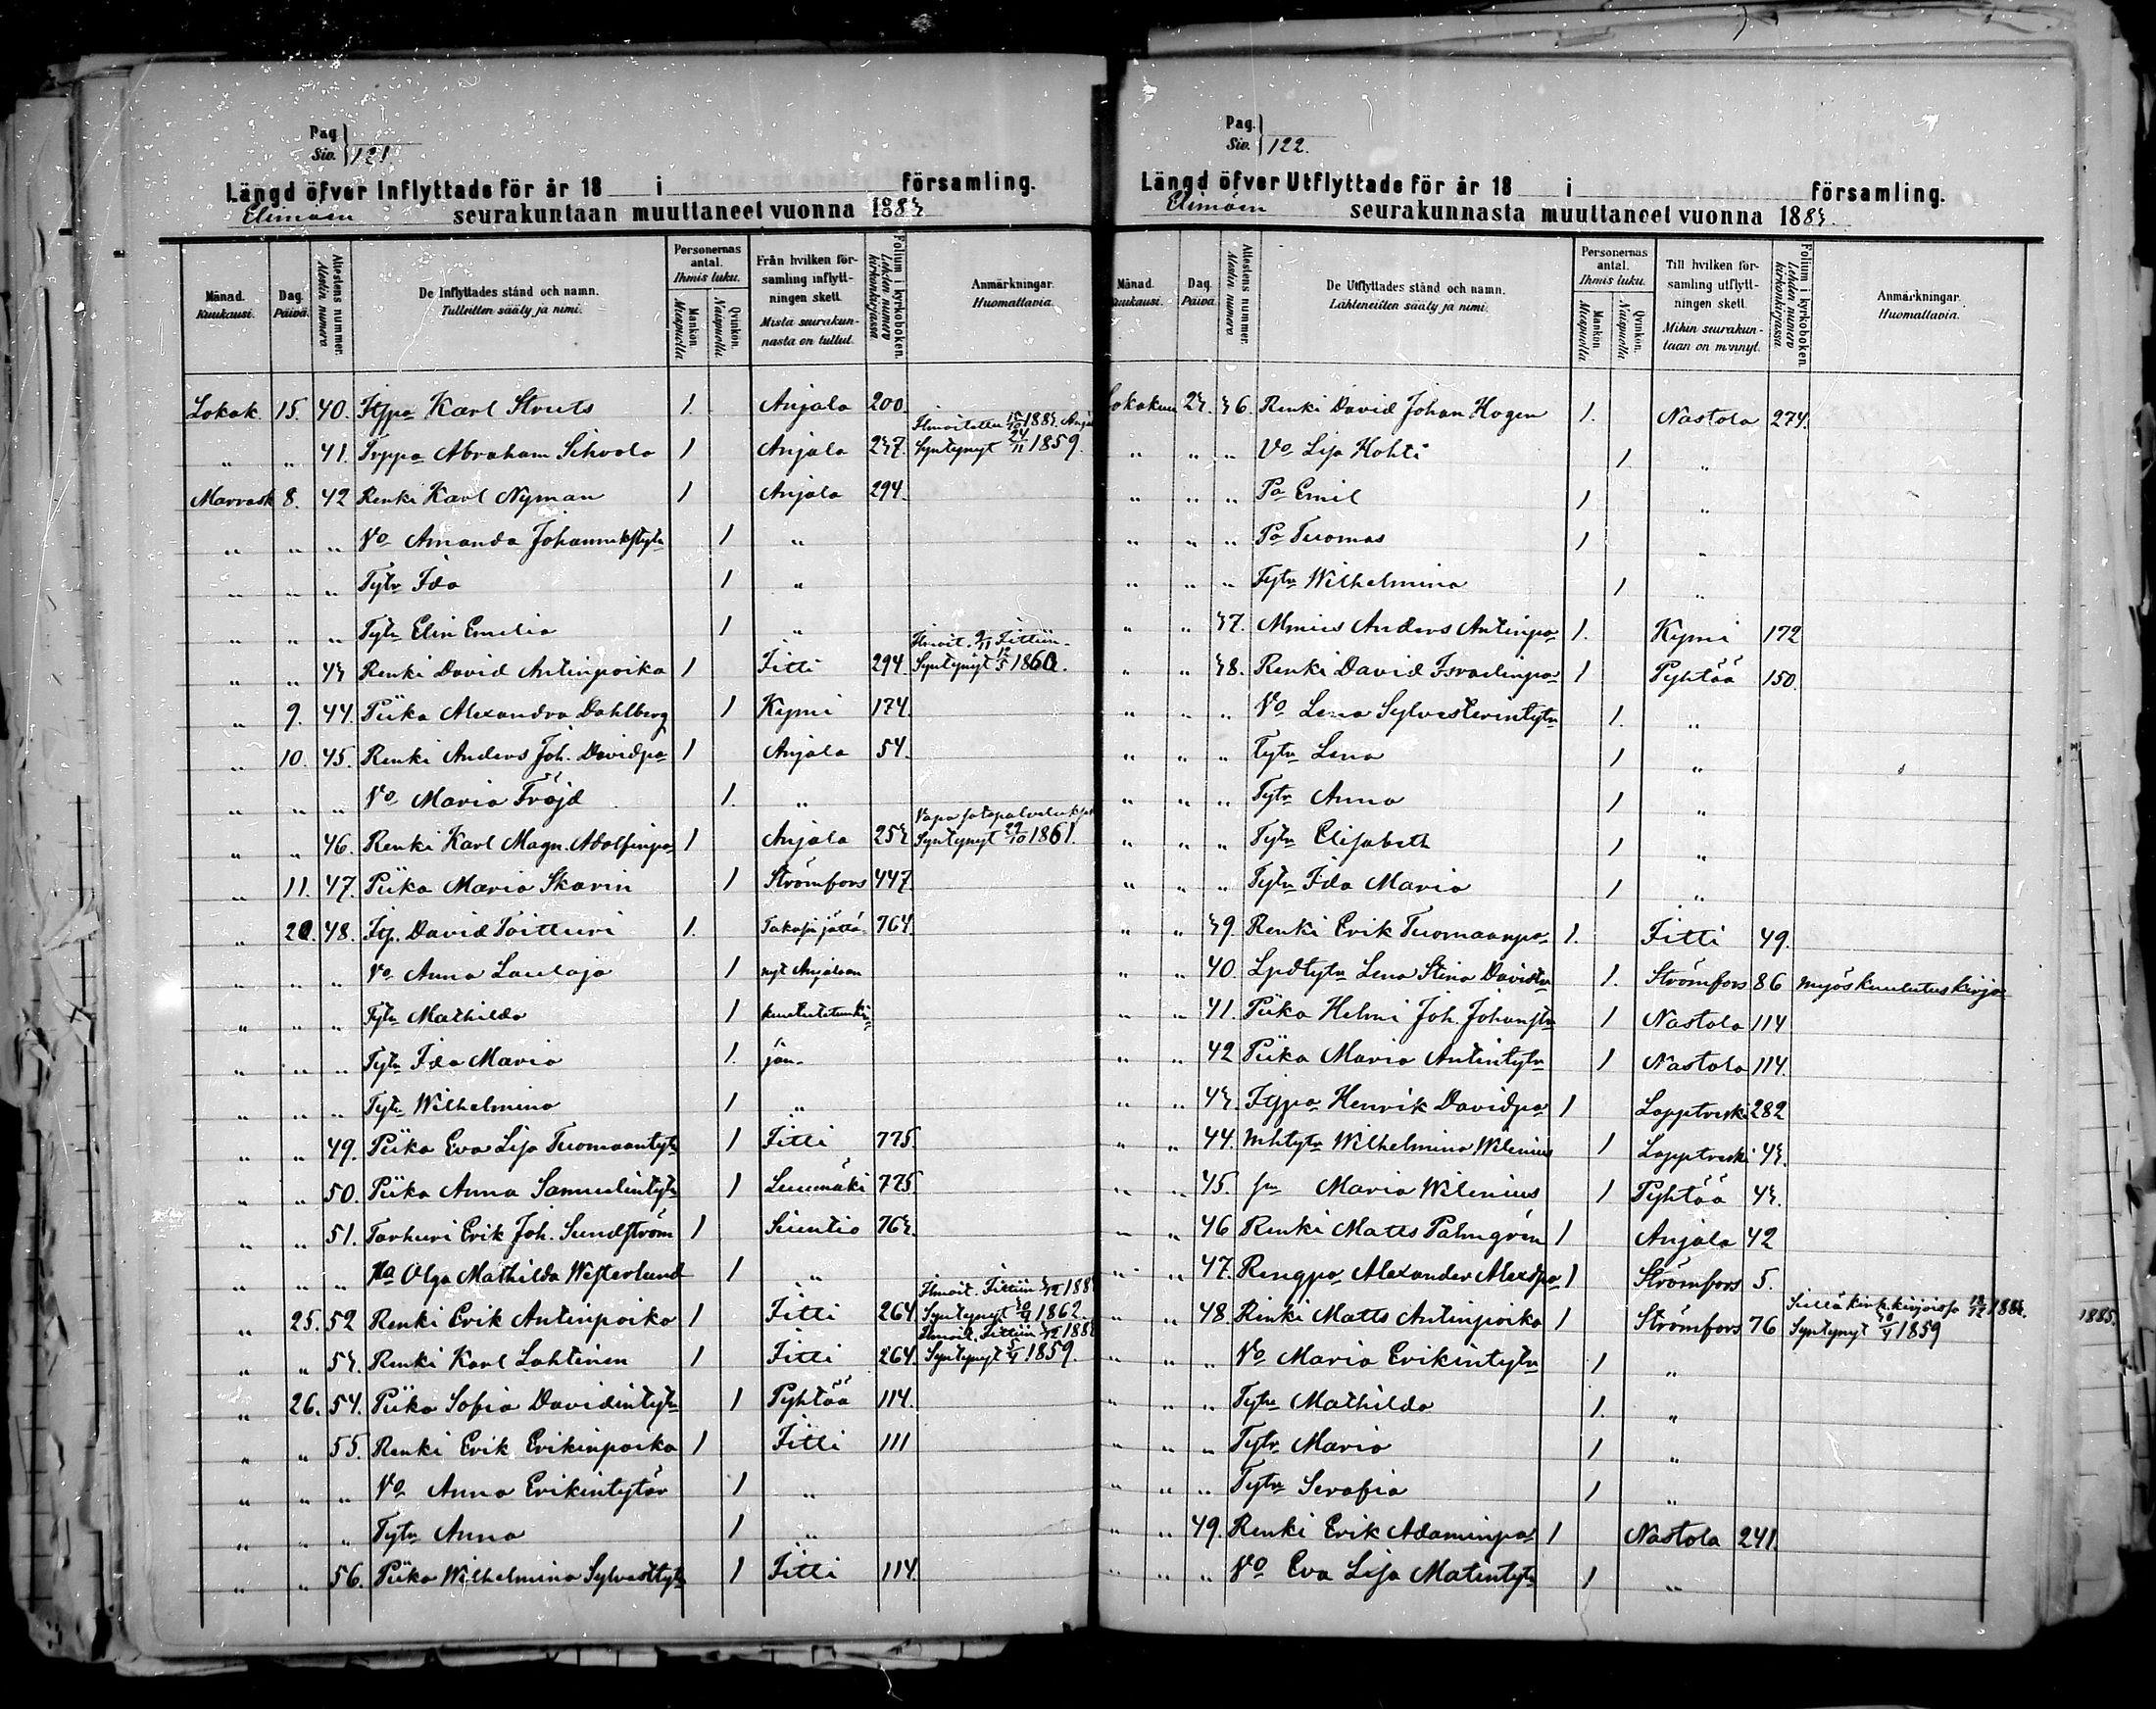 Pag
Siv. 121.
Längd öfver Inflyttade för år 18 i församling.
Elimäen seurakuntaan muuttaneet vuonna 1883
Månad. Kuukausi. Dag. Päivä. Attestens nummer. Alestin numero De Inflyttades stånd och namn. Tulleitten sääty ja nimi. Personernas antal. Ihmis luku. Mankön. Miespuolia Qvinkön. Naispuolia Från hvilken församling inflyttningen skett. Mistä seurakunnasta on tullut. Folium i kyrkoboken. Lehden numero kirkonkirjassa Anmärkningar. Huomattavia.
Lokak. 15. 40. Itspo Karl Struts 1. Anjala 200.
" " 41. Abraham Sihvola 1 Anjala 237. Ilmoitettu 15/10 1883 Syntynyt 24/11 1859.
Marrask 8. 42 Renki Karl Nyman 1 Anjala 294.
" " " Vo Amanda 1 "
" " " Tytr Ida 1 "
" " " Tytr Elin Emelia 1 "
" " 43 Renki David Antinpoika 1 Iitti 294. Ilmoit. 9/11 Iittiin Syntynyt 12/5 1860.
" 9. 44. Piika Alexandra Dahlberg 1 Kymi 174.
" 10. 45. Renki Anders Joh. Davidpo 1 Anjala 54.
" " " Vo Maria Fröjd 1. "
" " 46. Renki Karl Magn. Adolfinpo 1 Anjala 253 Vapa Syntynyt 29/10 1861.
" 11. 47. Piika Maria Skarin 1 Strömfors 447.
" 20. 48. Itp. David Toitturi 1. Takasin jättä 764.
" " " Vo Anna Laulaja 1 nyt Anjalaan
" " " Tytr Mathilda 1
" " " Tytr Ida Maria 1. jän.
" " " Tytr Wilhelmina 1 "
" " 49. Piika Eva Lisa Tuomaantytr 1 Iitti 775.
" " 50. Piika Anna Samuelintytr 1 Luumäki 775.
" " 51. Tarhuri Erik Joh. Sundström 1 Suntio 763.
" " " Olga Mathilda Westerlund 1 "
" 25. 52 Renki Erik Antinpoika 1 Iitti 264. Ilmoit. Iittiin 3/12 1883 Syntynyt 1862.
" " 53. Renki Karl Lahtinen 1 Iitti 264. Ilmoit. Iittiin 3/12 1883 Syntynyt 1859.
" 26. 54. Piika Sofia Davidintytr 1 Pyhtää 114.
" " 55. Renki Erik Erikinpoika 1 Iitti 111
" " " Vo Anna Erikintytär 1 "
" " " Tytr Anna 1 "
" " 56. Piika Wilhelmina Sylvesttytr 1 Iitti 114.
Pag.
Siv. 122.
Längd öfver Utflyttade för år 18 i församling.
Elimäen seurakunnasta muuttaneet vuonna 1883.
Månad. Kuukausi. Dag. Päivä. Attestens nummer. Alestin numero De Utflyttades stånd och namn. Lähteneitten sääty ja nimi. Personernas antal. Ihmis luku. Mankön. Miespuolia Qvinkön. Naispuolia Till hvilken församling utflyttningen skett. Mihin seurakuntaan on mennyt. Folium i kyrkoboken. Lehden numero kirkonkirjassa Anmärkningar. Huomattavia.
Lokakuu 23. 36. Renki David Johan Hagen 1. Nastola 274.
" " " Vo Lisa Kohti 1. "
" " " Po Emil 1 "
" " " Po Tuomas 1 "
" " " Tytr Wilhelmina 1 "
" " 37. Anders Antinpo 1. Kymi 172
" " 38. Renki David Israelinpo 1 Pyhtää 150.
" " " Vo Lena Sylvesterintytr 1. "
" " " Tytr Lena 1 "
" " " Tytr Anna 1 "
" " " Tytr Elisabeth 1 "
" " " Tytr Ida Maria 1 "
" " 39. Renki Erik Tuomaanpo 1. Iitti 49.
" " 40. Lpdtytr Lena Stina Davidtr 1. Strömfors 86 myös kuulutuskirja
" " 41. Piika Helmi Joh. Johanstr 1 Nastola 114
" " 42 Piika Maria Antintytr 1 Nastola 114.
" " 43. Itspo Henrik Davidpo 1 Lapptreski 282
" " 44. Mhtytr Wilhelmina Wilenius 1 Lapptreski 43.
" " 45. sn Maria Wilenius 1 Pyhtää 43.
" " 46 Renki Matts Palmgrén 1 Anjala 42
" " 47. Rengpo Alexander Alexdpo 1 Strömfors 5.
" " 48. Renki Matts Antinpoika 1 Strömfors 76 Siellä kirk. kirjoissa 1883. Syntynyt 1859 1885.
" " " Vo Maria Erikintytr 1 "
" " " Tytr Mathilda 1. "
" " " Tytr Maria 1 "
" " " Tytr Serafia 1 "
" " 49. Renki Erik Adaminpo 1 Nastola 241.
" " " Vo Eva Lisa Matintytr 1 "